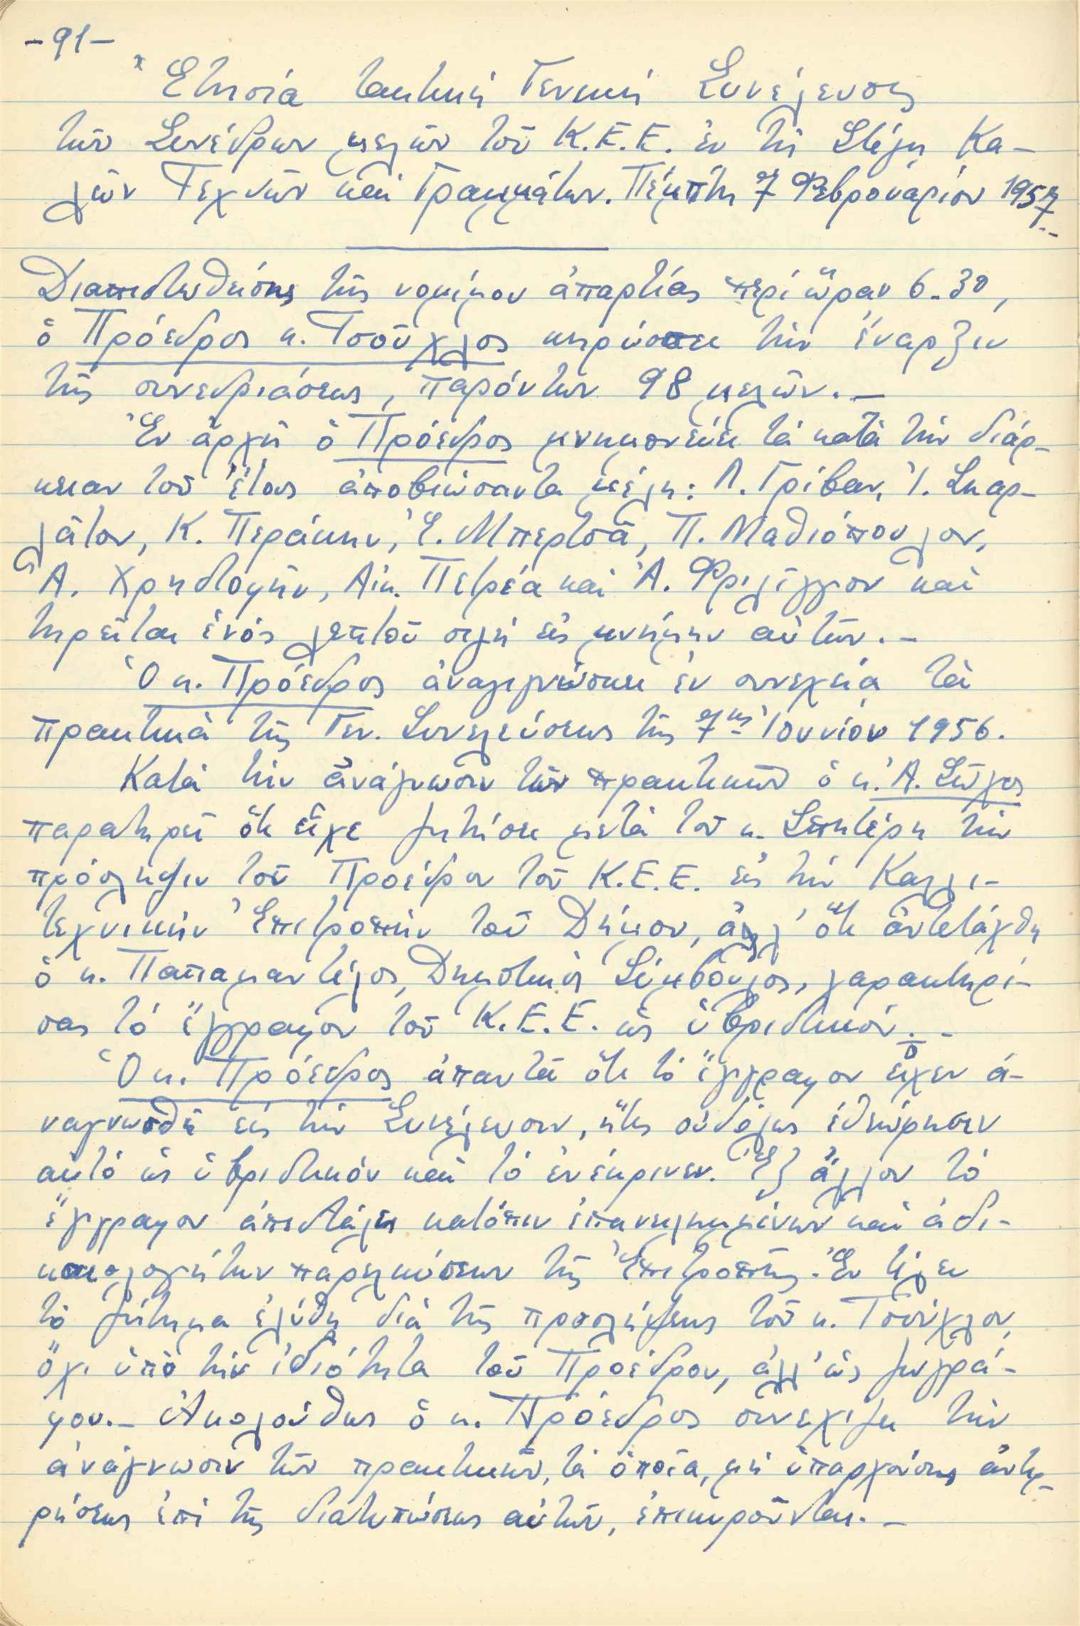 -91-
Ἐτησία τακτική Γενική Συνέλευσις
τῶν Συνέδρων μελῶν τοῦ Κ.Ε.Ε. ἐν τῇ Στέγῃ Κα-
λῶν Τεχνῶν καὶ Γραμμάτων. Πέμπτη 7 Φεβρουαρίου 1957
Διαπιστωθείσης τῆς νομίμου ἀπαρτίας περί ὥραν 6.30,
ὁ Πρόεδρος κ. Τσοῦχλος κηρύσσει τὴν ἔναρξιν
τῆς συνεδριάσεως, παρόντων 98 μελῶν.-
Ἐν ἀρχῇ ὁ Πρόεδρος μνημονεύει τὰ κατὰ τὴν διάρ-
κειαν τοῦ ἔτους ἀποβιώσαντα μέλη: Λ. Γρίβαν, Ἰ. Σκαρ-
λᾶτον, Κ. Περάκην, Ἐ. Μπερτσᾶ, Π. Μαθιόπουλον,
Ἀ. Χρηστοφῆν, Αἰκ. Πετρέα καὶ Ἀ. Φιλίγγον καὶ
τηρεῖται ἑνός λεπτοῦ σιγή εἰς μνήμην αὐτῶν.-
Ὁ κ. Πρόεδρος ἀναγιγνώσκει ἐν συνεχείᾳ τὰ
πρακτικὰ τῆς Γεν. Συνελεύσεως τῆς 7ης Ἰουνίου 1956.
Κατὰ τὴν ἀνάγνωσιν τῶν πρακτικῶν ὁ κ. Ἀ. Σῶχος
παρατηρεῖ ὅτι εἶχε ζητήσει μετὰ τοῦ κ. Σπητέρη τὴν
πρόσληψιν τοῦ Προέδρου τοῦ Κ.Ε.Ε. εἰς τὴν Καλλι-
τεχνικὴν Ἐπιτροπὴν τοῦ Δήμου, ἀλλ' ὅτι ἀντετάχθη
ὁ κ. Παπαμαντέλος, Δημοτικὸς Σύμβουλος, χαρακτηρί-
σας τό ἔγγραφον τοῦ Κ.Ε.Ε. ὡς ὑβριστικόν.-
Ὁ κ. Πρόεδρος ἀπαντᾶ ὅτι τό ἔγγραφον εἶχεν ἀ-
ναγνωσθῆ εἰς τὴν Συνέλευσιν, ἥτις οὐδόλως ἐθεώρησεν
αὐτό ὡς ὑβριστικόν καὶ τό ἐνέκρινεν. Ἐξ ἄλλου τό
ἔγγραφον ἀπεστάλη κατόπιν ἐπανειλημμένων καὶ ἀδι-
καιολογήτων παρελκύσεων τῆς Ἐπιτροπῆς. Ἐν τέλει
τό ζήτημα ἐλύθη διά τῆς προσλήψεως τοῦ κ. Τσούχλου,
ὄχι ὑπό τὴν ἰδιότητα τοῦ Προέδρου, ἀλλ' ὡς ζωγρά-
φου.- Ἀκολούθως ὁ κ. Πρόεδρος συνεχίζει τὴν
ἀνάγνωσιν τῶν πρακτικῶν, τὰ ὁποῖα, μή ὑπαρχούσης ἀντιρ-
ρήσεως ἐπί τῆς διατυπώσεως αὐτῶν, ἐπικυροῦνται.-